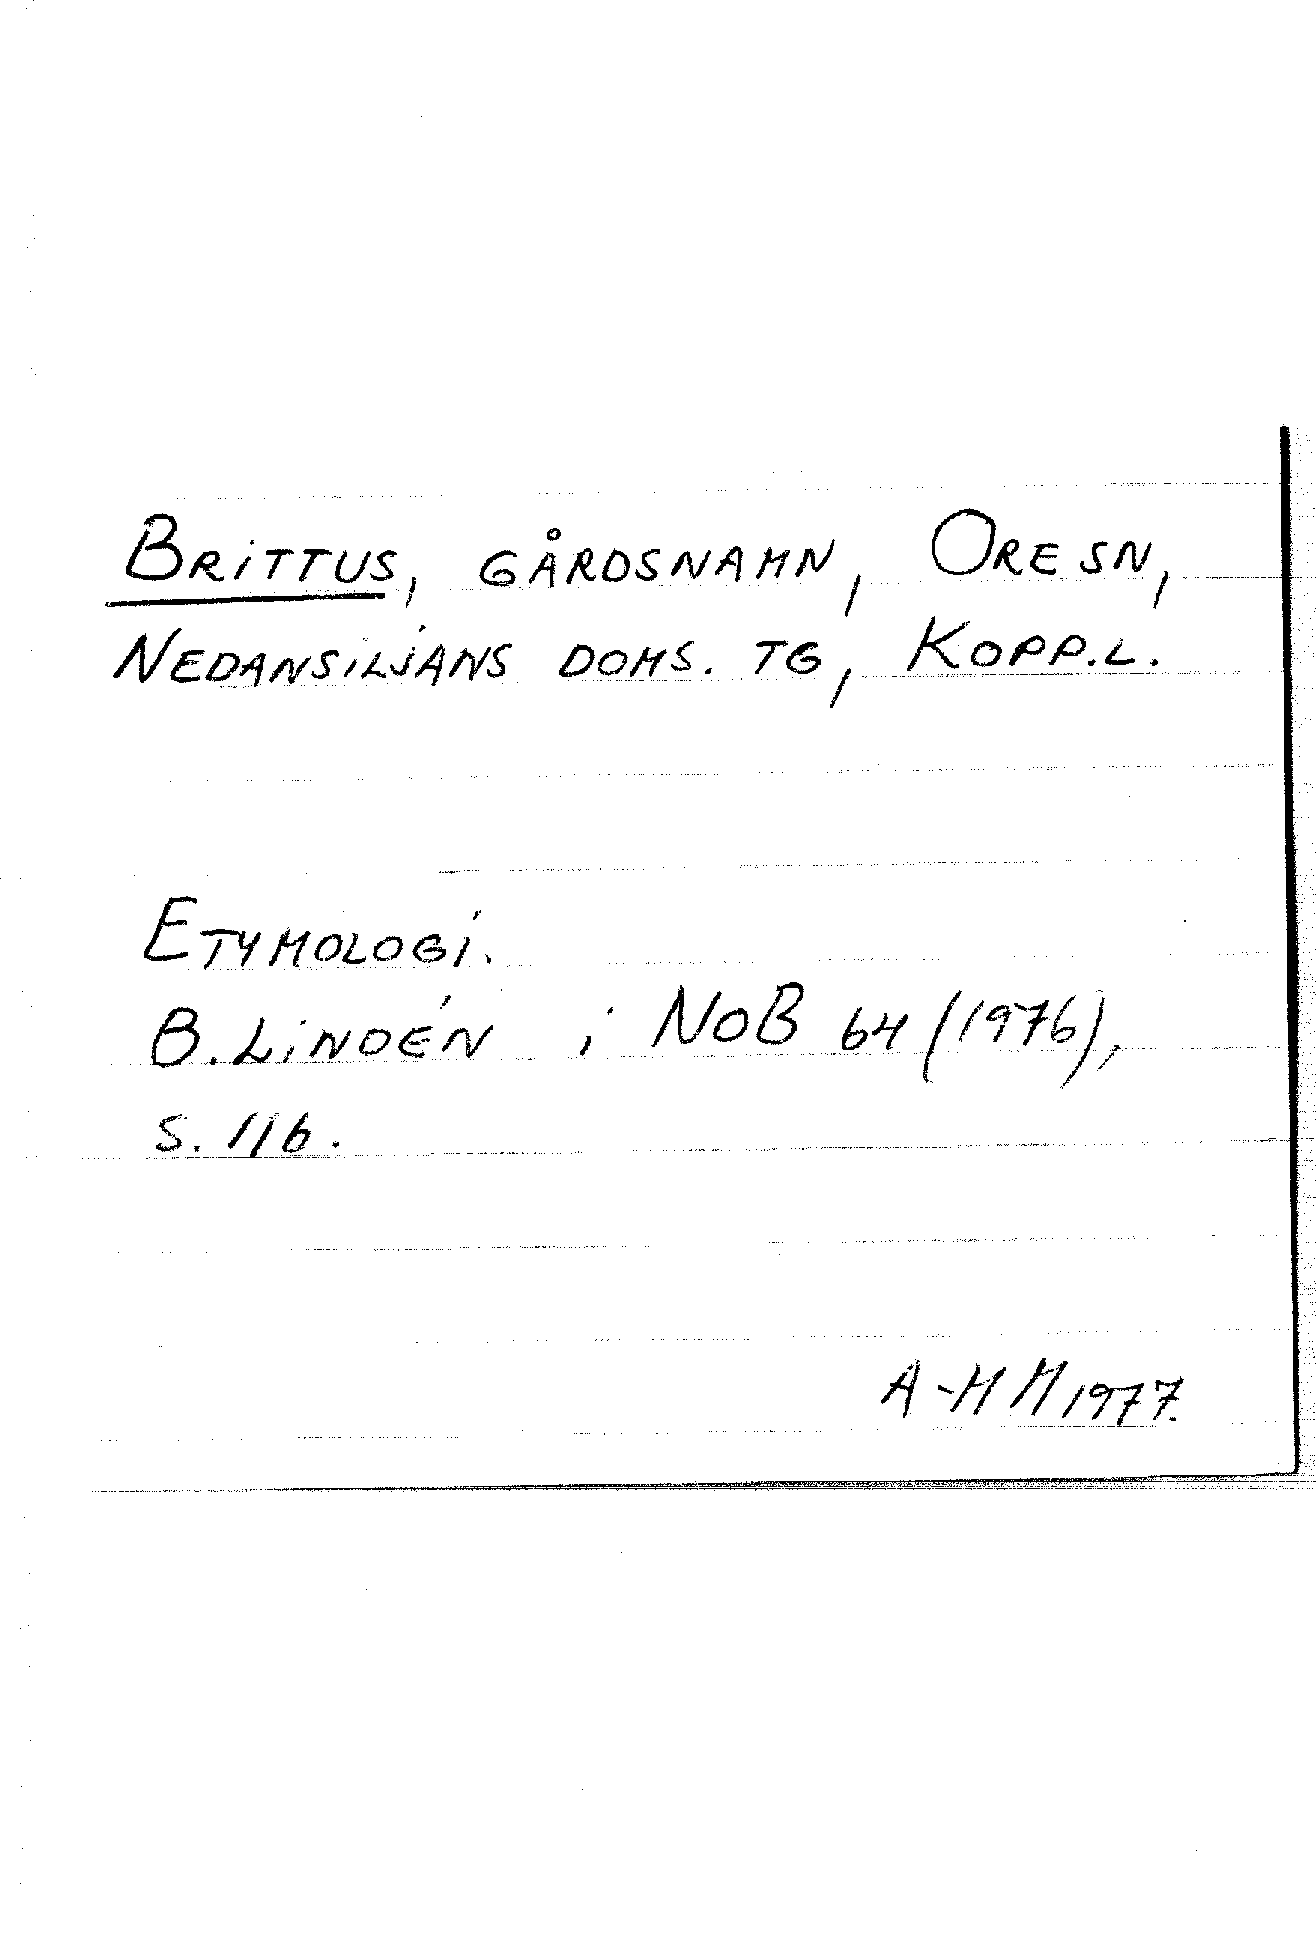 BRITTUS, GÅRDSNAMN, ORE SN,
NEDANSILJANS DOMS. TG, KOPP.L.
ETYMOLOGI.
B. LINDÉN i NOB 64 (1976),
S. 116.
A-M M 1977.